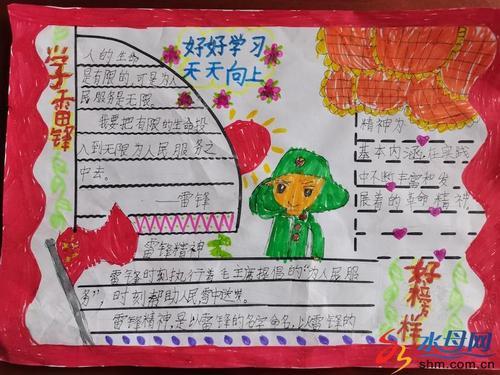 学雷锋
好好学习
天天向上
人的生命
是有限的,可是为人
民服务是无限。
我要把有限的生命投
入到无限为人民服务之
中去。
——雷锋
精神为
基本内涵,在实践
中不断丰富和发
展着的革命精神
雷锋精神
雷锋时刻执行着毛主席提倡的“为人民服
务”,时刻帮助人民
雷锋精神,是以雷锋的名字命名,以雷锋的
好榜样
水母网
shm.com.cn